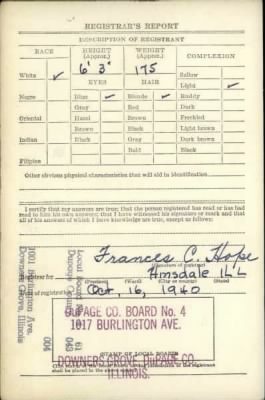 REGISTRAR'S REPORT
DESCRIPTION OF REGISTRANT
RACE HEIGHT (Approx.) WEIGHT (Approx.) COMPLEXION
White ✓ 6' 3" 175 Sallow
EYES HAIR Light ✓
Negro Blue ✓ Blonde ✓ Ruddy
Gray Red Dark
Oriental Hazel Brown Freckled
Brown Black Light brown
Indian Black Gray Dark brown
Bald Black
Filipino
Other obvious physical characteristics that will aid in identification
I certify that my answers are true; that the person registered has read or has had
read to him his own answers; that I have witnessed his signature or mark and that
all of his answers of which I have knowledge are true, except as follows:
Frances C. Hope
(Signature of registrar)
Hinsdale Ill
(Precinct) (Ward) (City or county)
Date of registration Oct, 16, 1940
Local Board No.
043
004
1001 Burlington Ave.
Downers Grove, Illinois
DUPAGE CO. BOARD No. 4
1017 BURLINGTON AVE.
DOWNERS GROVE, DUPAGE CO.
ILLINOIS.
(STAMP OF LOCAL BOARD)